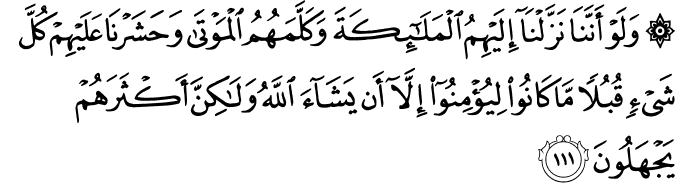 ۞ وَلَوْ أَنَّنَا نَزَّلْنَآ إِلَيْهِمُ ٱلْمَلَـٰٓئِكَةَ وَكَلَّمَهُمُ ٱلْمَوْتَىٰ وَحَشَرْنَا عَلَيْهِمْ كُلَّ
شَىْءٍ قُبُلًا مَّا كَانُوا۟ لِيُؤْمِنُوٓا۟ إِلَّآ أَن يَشَآءَ ٱللَّهُ وَلَـٰكِنَّ أَكْثَرَهُمْ
يَجْهَلُونَ ١١١